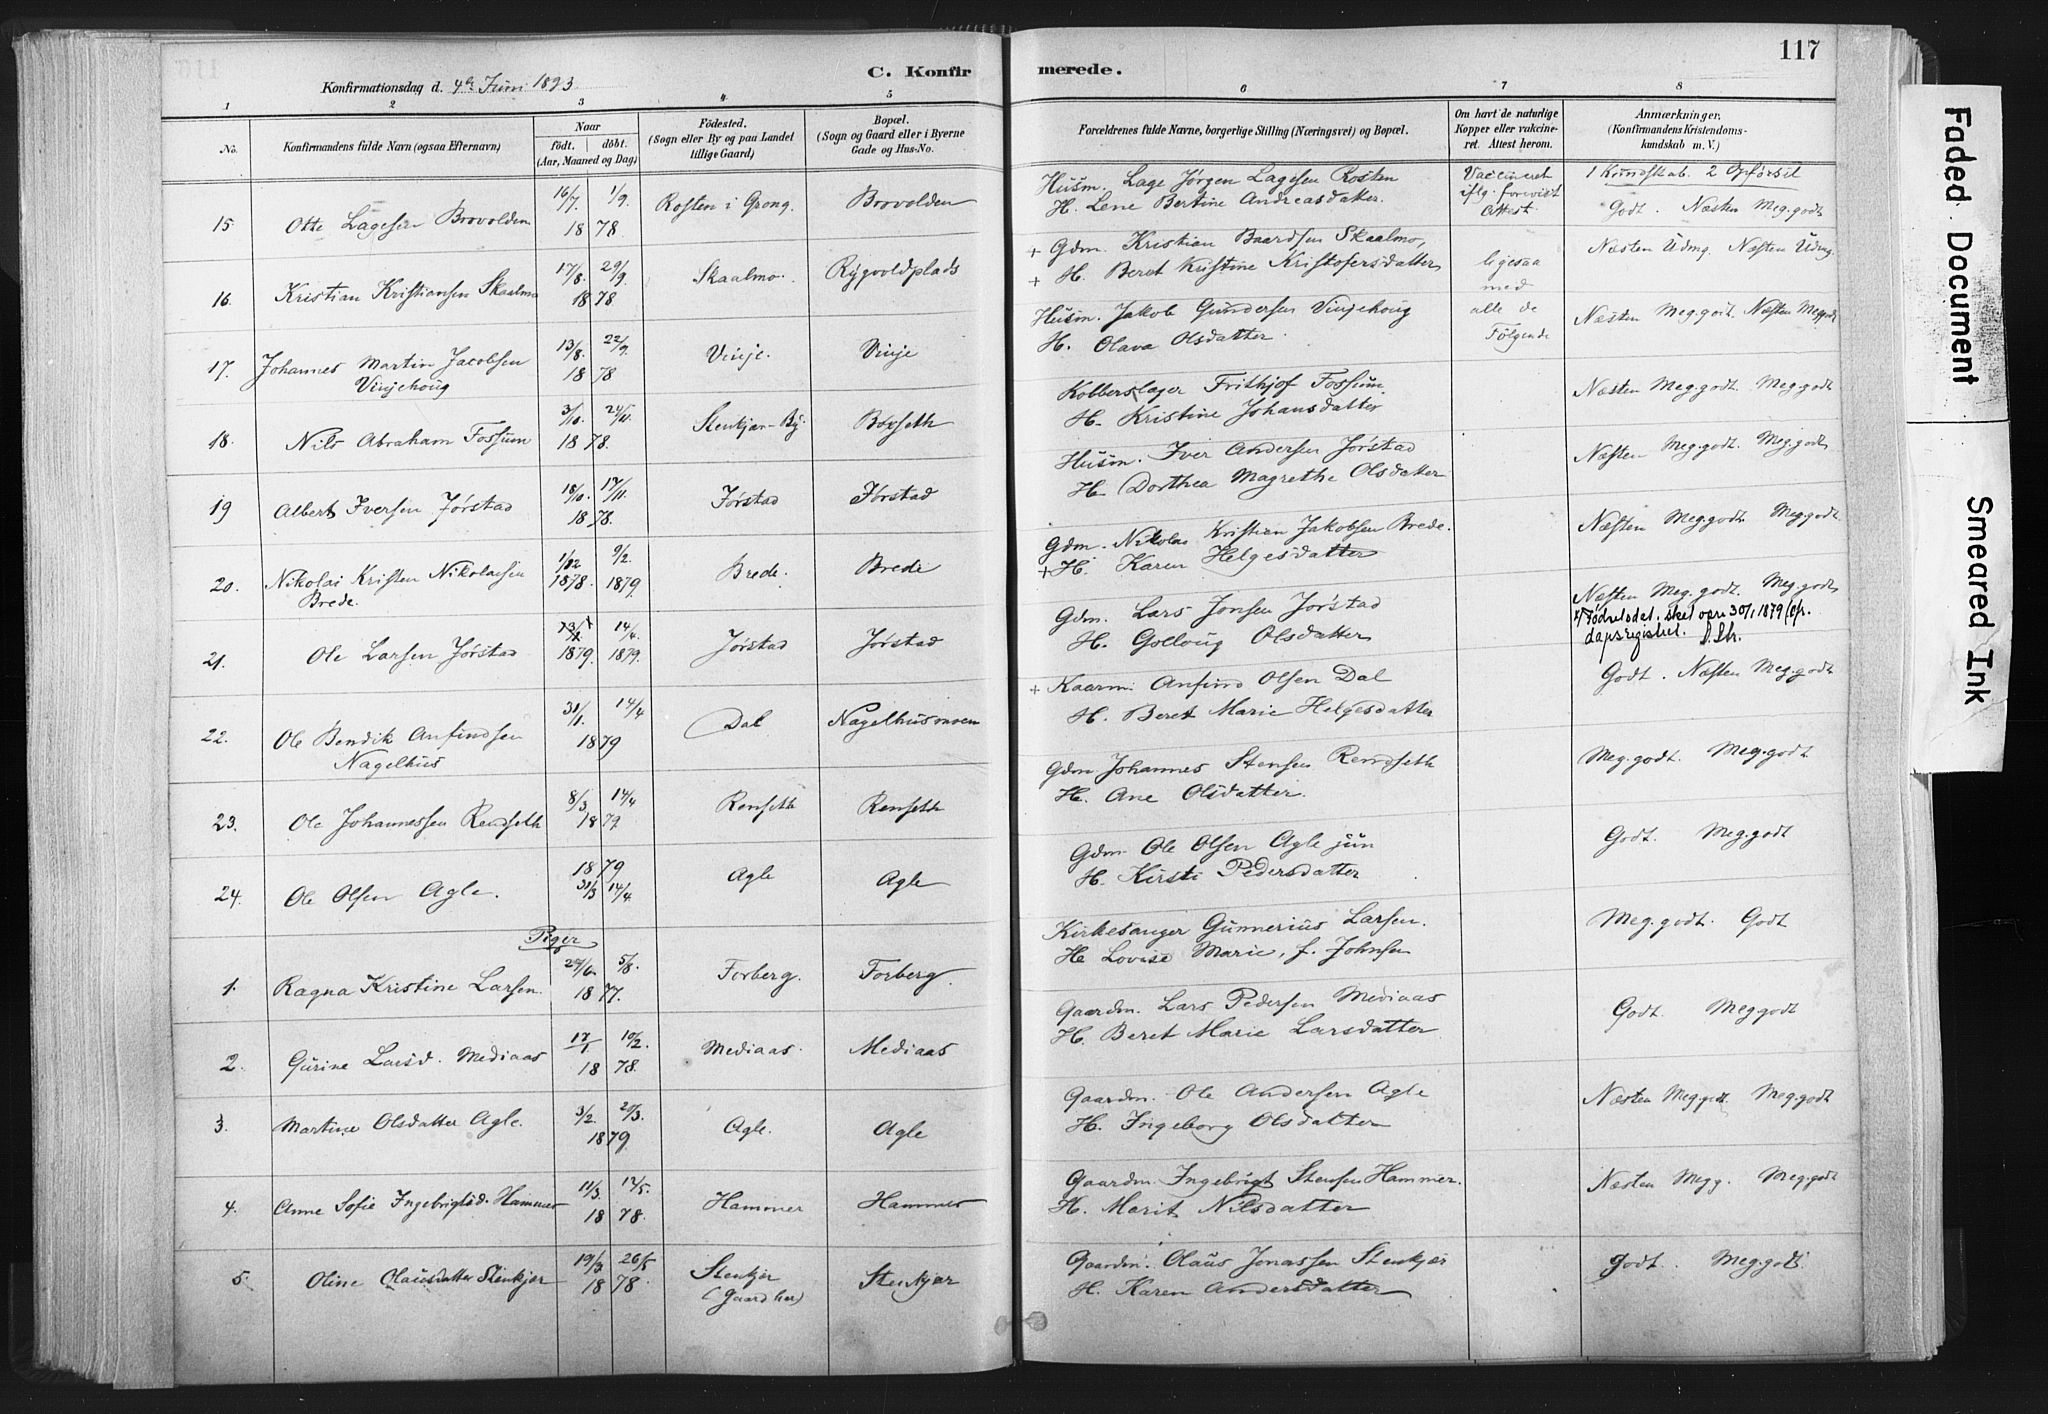 117
C. Konfirmerede.
Konfirmationsdag d. 4de Juni 1893
1 2 3 4 5 6 7 8
No.
Konfirmandens fulde Navn (ogsaa Efternavn)
Naar
født. døbt.
(Aar, Maaned og Dag)
Fødested.
(Sogn eller By og paa Landet
tillige Gaard)
Bopæl.
(Sogn og Gaard eller i Byerne
Gade og Hus-No.
Forældrenes fulde Navne, borgerlige Stilling (Næringsvei) og Bopæl.
Om havt de naturlige
Kopper eller vakcine-
ret. Attest herom.
Anmærkninger,
(Konfirmandens Kristendoms-
kundskab m. V.)
1 Kundskab. 2 Opførsel
15. Otte Lagesen Brovolden 16/7 1/9 1878 Rosten i Grong. Brovolden
Husm. Lage Jørgen Lagesen Rosten
H. Lene Bertine Andreasdatter.
Vaccineret
iflg. forevist
Attest
Godt. Næsten Meg.godt
16. Kristian Kristiansen Skaalmo 17/8. 29/9. 1878 Skaalmo. Rygvoldplads
+ Gdm. Kristian Baardsen Skaalmo,
+ H. Beret Kristine Kristofersdatter
ligesaa
med
Næsten Udmg. Næsten Udmg.
17. Johannes Martin Jacobsen
Vinjehoug 13/8. 22/9. 1878 Vinje. Vinje
Husm. Jakob Gundersen Vinjehoug
H. Olava Olsdatter.
alle de
Følgende
Næsten Meg.godt. Næsten Meg.godt
18. Nils Abraham Fossum 3/10. 24/11. 1878. Stenkjær By. Børseth
Kobberslager Frithjof Fossum
H. Kristine Johansdatter
Næsten Meg.godt. Meg.godt
19 Albert Iversen Jørstad 18/10. 17/11. 1878. Jørstad Jørstad
Husm. Iver Andersen Jørstad
H. Dorthea Magrethe Olsdatter
Næsten Meg.godt. Meg.godt
20. Nikolai Kristen Nikolaisen
Brede. 1/12 1878. 9/2. 1879 Brede. Brede
Gdm. Nikolai Kristian Jakobsen Brede.
+ H. Karen Helgesdatter
Næsten Meg.godt. Meg.godt
21. Ole Larsen Jørstad 1879. 14/4. 1879. Jørstad Jørstad
Gdm. Lars Jonsen Jørstad
H. Gollaug Olsdatter
Næsten Meg.godt. Meg.godt
x) Fødselsdat. skal være 30/1 1879 (cfr.
dapsregistret. S.Str.
22. Ole Bendik Anfindsen
Nagelhus 31/1. 14/4 1879 Dal Nagelhusmoen
+ Kaarm. Anfind Olsen Dal
H. Beret Marie Helgesdatter
Godt. Næsten Meg.godt
23. Ole Johannessen Rendseth 8/3 14/4 1879. Renseth Renseth
Gdm Johannes Stensen Rendseth
H. Ane Olsdatter.
Meg.godt. Meg.godt
24. Ole Olsen Agle. 1879 31/3 14/4 Agle Agle
Gdm. Ole Olsen Agle jun
H. Kirsti Pedersdatter
Godt. Meg.godt
Piger
1. Ragna Kristine Larsen. 24/6. 5/8. 1877. Forberg. Forberg.
Kirkesanger Gunnerius Larsen.
H. Lovise Marie, f. Johnsen
Meg.godt. Godt
2. Gurine Larsd. Mediaas 17/1 10/2. 1878. Mediaas. Mediaas
Gaardm. Lars Pedersen Mediaas
H. Beret Marie Larsdatter
Godt. Meg.godt
3. Martine Olsdatter Agle. 3/2. 20/3. 1879 Agle. Agle
Gaardm. Ole Andersen Agle
H. Ingeborg Olsdatter
Næsten Meg.godt. Meg.godt
4. Anne Sofie Ingebrigtsd. Hammer 11/3. 12/5. 1878. Hammer Hammer
Gaardm. Ingebrigt Stensen Hammer.
H. Marit Nilsdatter
Næsten Meg g. Meg.godt
5. Oline Olausdatter Stenkjær 19/3. 26/5 1878. Stenkjær
(Gaard her) Stenkjær
Gaardm. Olaus Jonassen Stenkjær
H. Karen Andersdatter
Godt. Meg.godt.
Faded Document
Smeared Ink